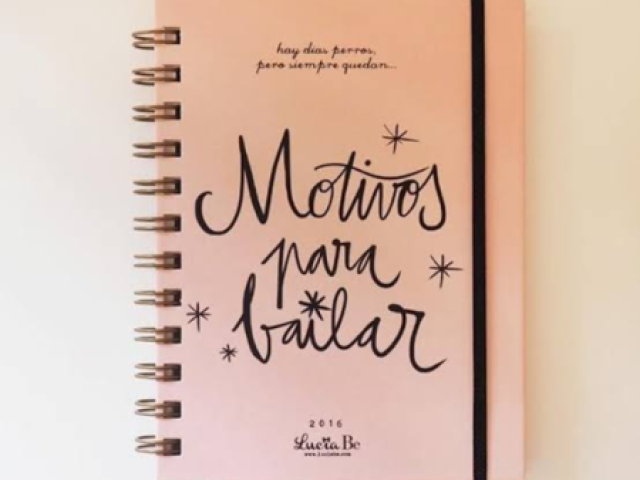 hay días perros,
pero siempre quedan...
Motivos
para
bailar
2016
Lucía Be